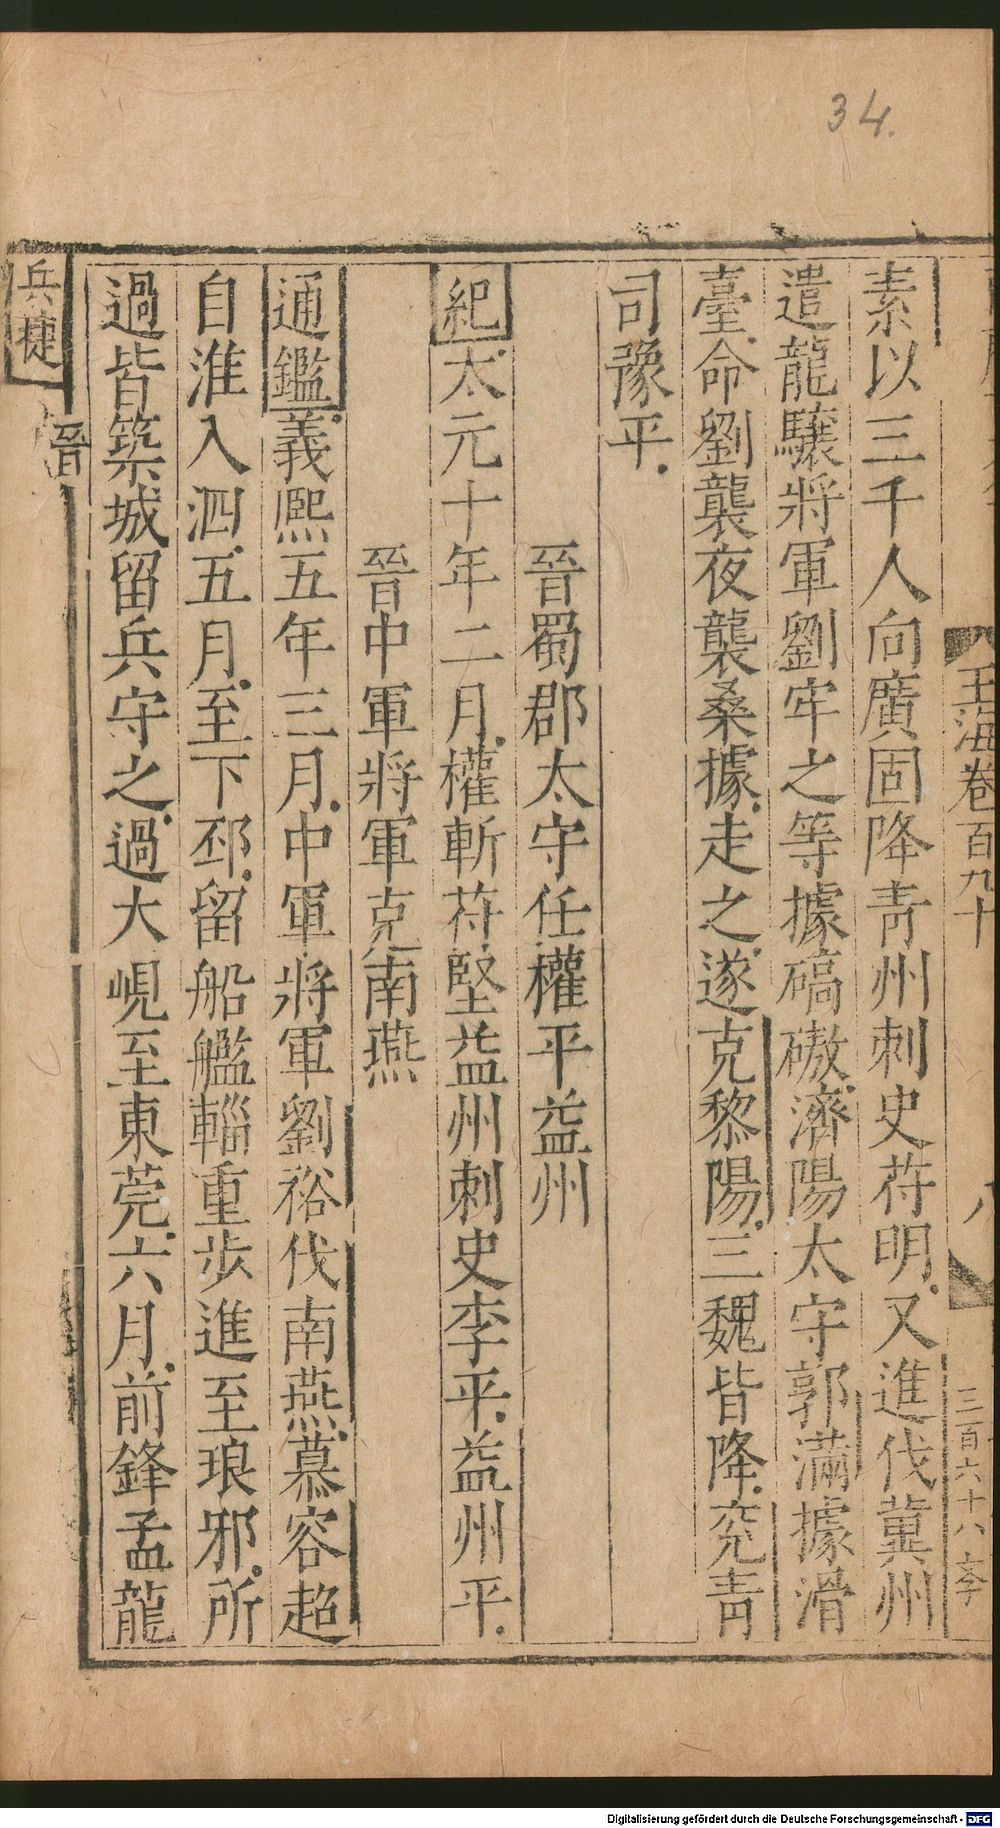 34.
玉海卷百九十
八
三百六十八 李
素以三千人向廣固降青州刺史苻明又進伐冀州
遣龍驤將軍劉牢之等據碻磝濟陽太守郭滿據滑
臺命劉襲夜襲桑據走之遂克黎陽三魏皆降兖青
司豫平
晉蜀郡太守任權平益州
紀太元十年二月權斬苻堅益州刺史李平益州平
晉中軍將軍克南燕
通鑑義熙五年三月中軍將軍劉裕伐南燕慕容超
自淮入泗五月至下邳留船艦輜重步進至琅邪所
過皆築城留兵守之過大峴至東莞六月前鋒孟龍
兵捷
晉
Digitalisierung gefördert durch die Deutsche Forschungsgemeinschaft - DFG